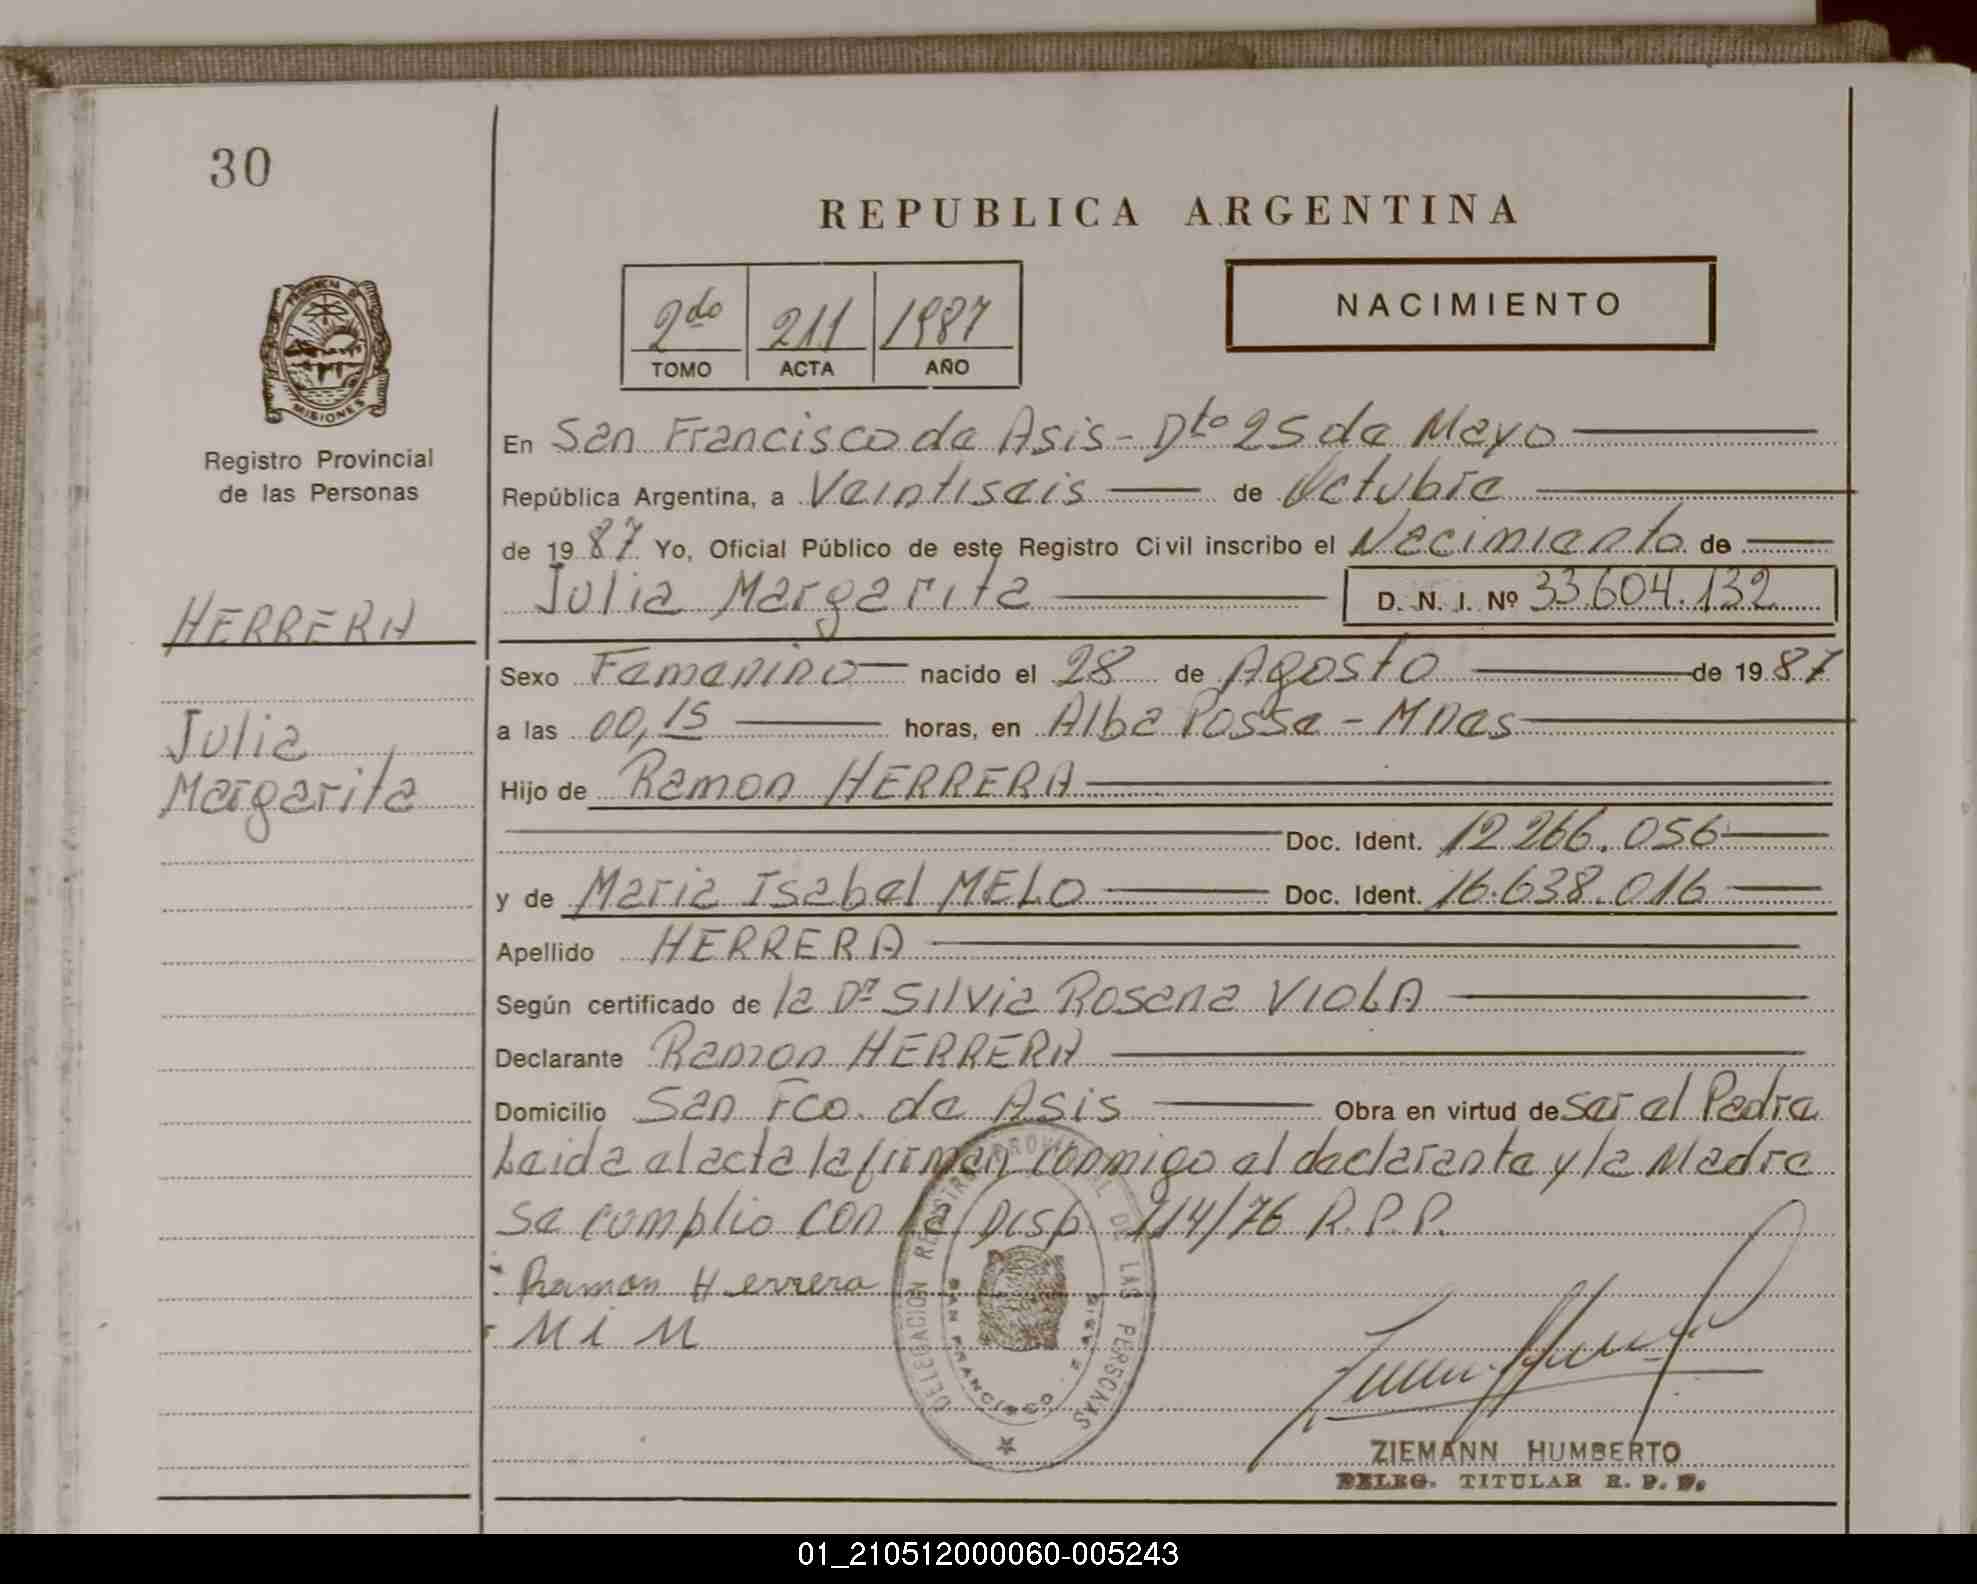 30
REPUBLICA ARGENTINA
2do 211 1987
TOMO ACTA AÑO
NACIMIENTO
PROVINCIA DE
MISIONES
Registro Provincial
de las Personas
En San Francisco de Asis - Dto 25 de Mayo
República Argentina, a Veintiseis de Octubre
de 19 87 Yo, Oficial Público de este Registro Civil inscribo el Nacimiento de
Julia Margarita D. N. I. Nº 33.604.132
HERRERA
Julia
Margarita
Sexo Femenino nacido el 28 de Agosto de 19 87
a las 00,15 horas, en Alba Posse - Mnes
Hijo de Ramon HERRERA
Doc. Ident. 12 266.056
y de Maria Isabel MELO Doc. Ident. 16.638.016
Apellido HERRERA
Según certificado de la Dra Silvia Rosana VIOLA
Declarante Ramon HERRERA
Domicilio San Fco. de Asis Obra en virtud de ser el Padre
Leida el acta la firman conmigo el declarante y la Madre
Se cumplio con la Disp. 214/76 R.P.P.
Ramon Herrera
M i M
DELEGACION REGISTRO PROVINCIAL DE LAS PERSONAS
SAN FRANCISCO DE ASIS
ZIEMANN HUMBERTO
DELEG. TITULAR R. P. P.
01_210512000060-005243